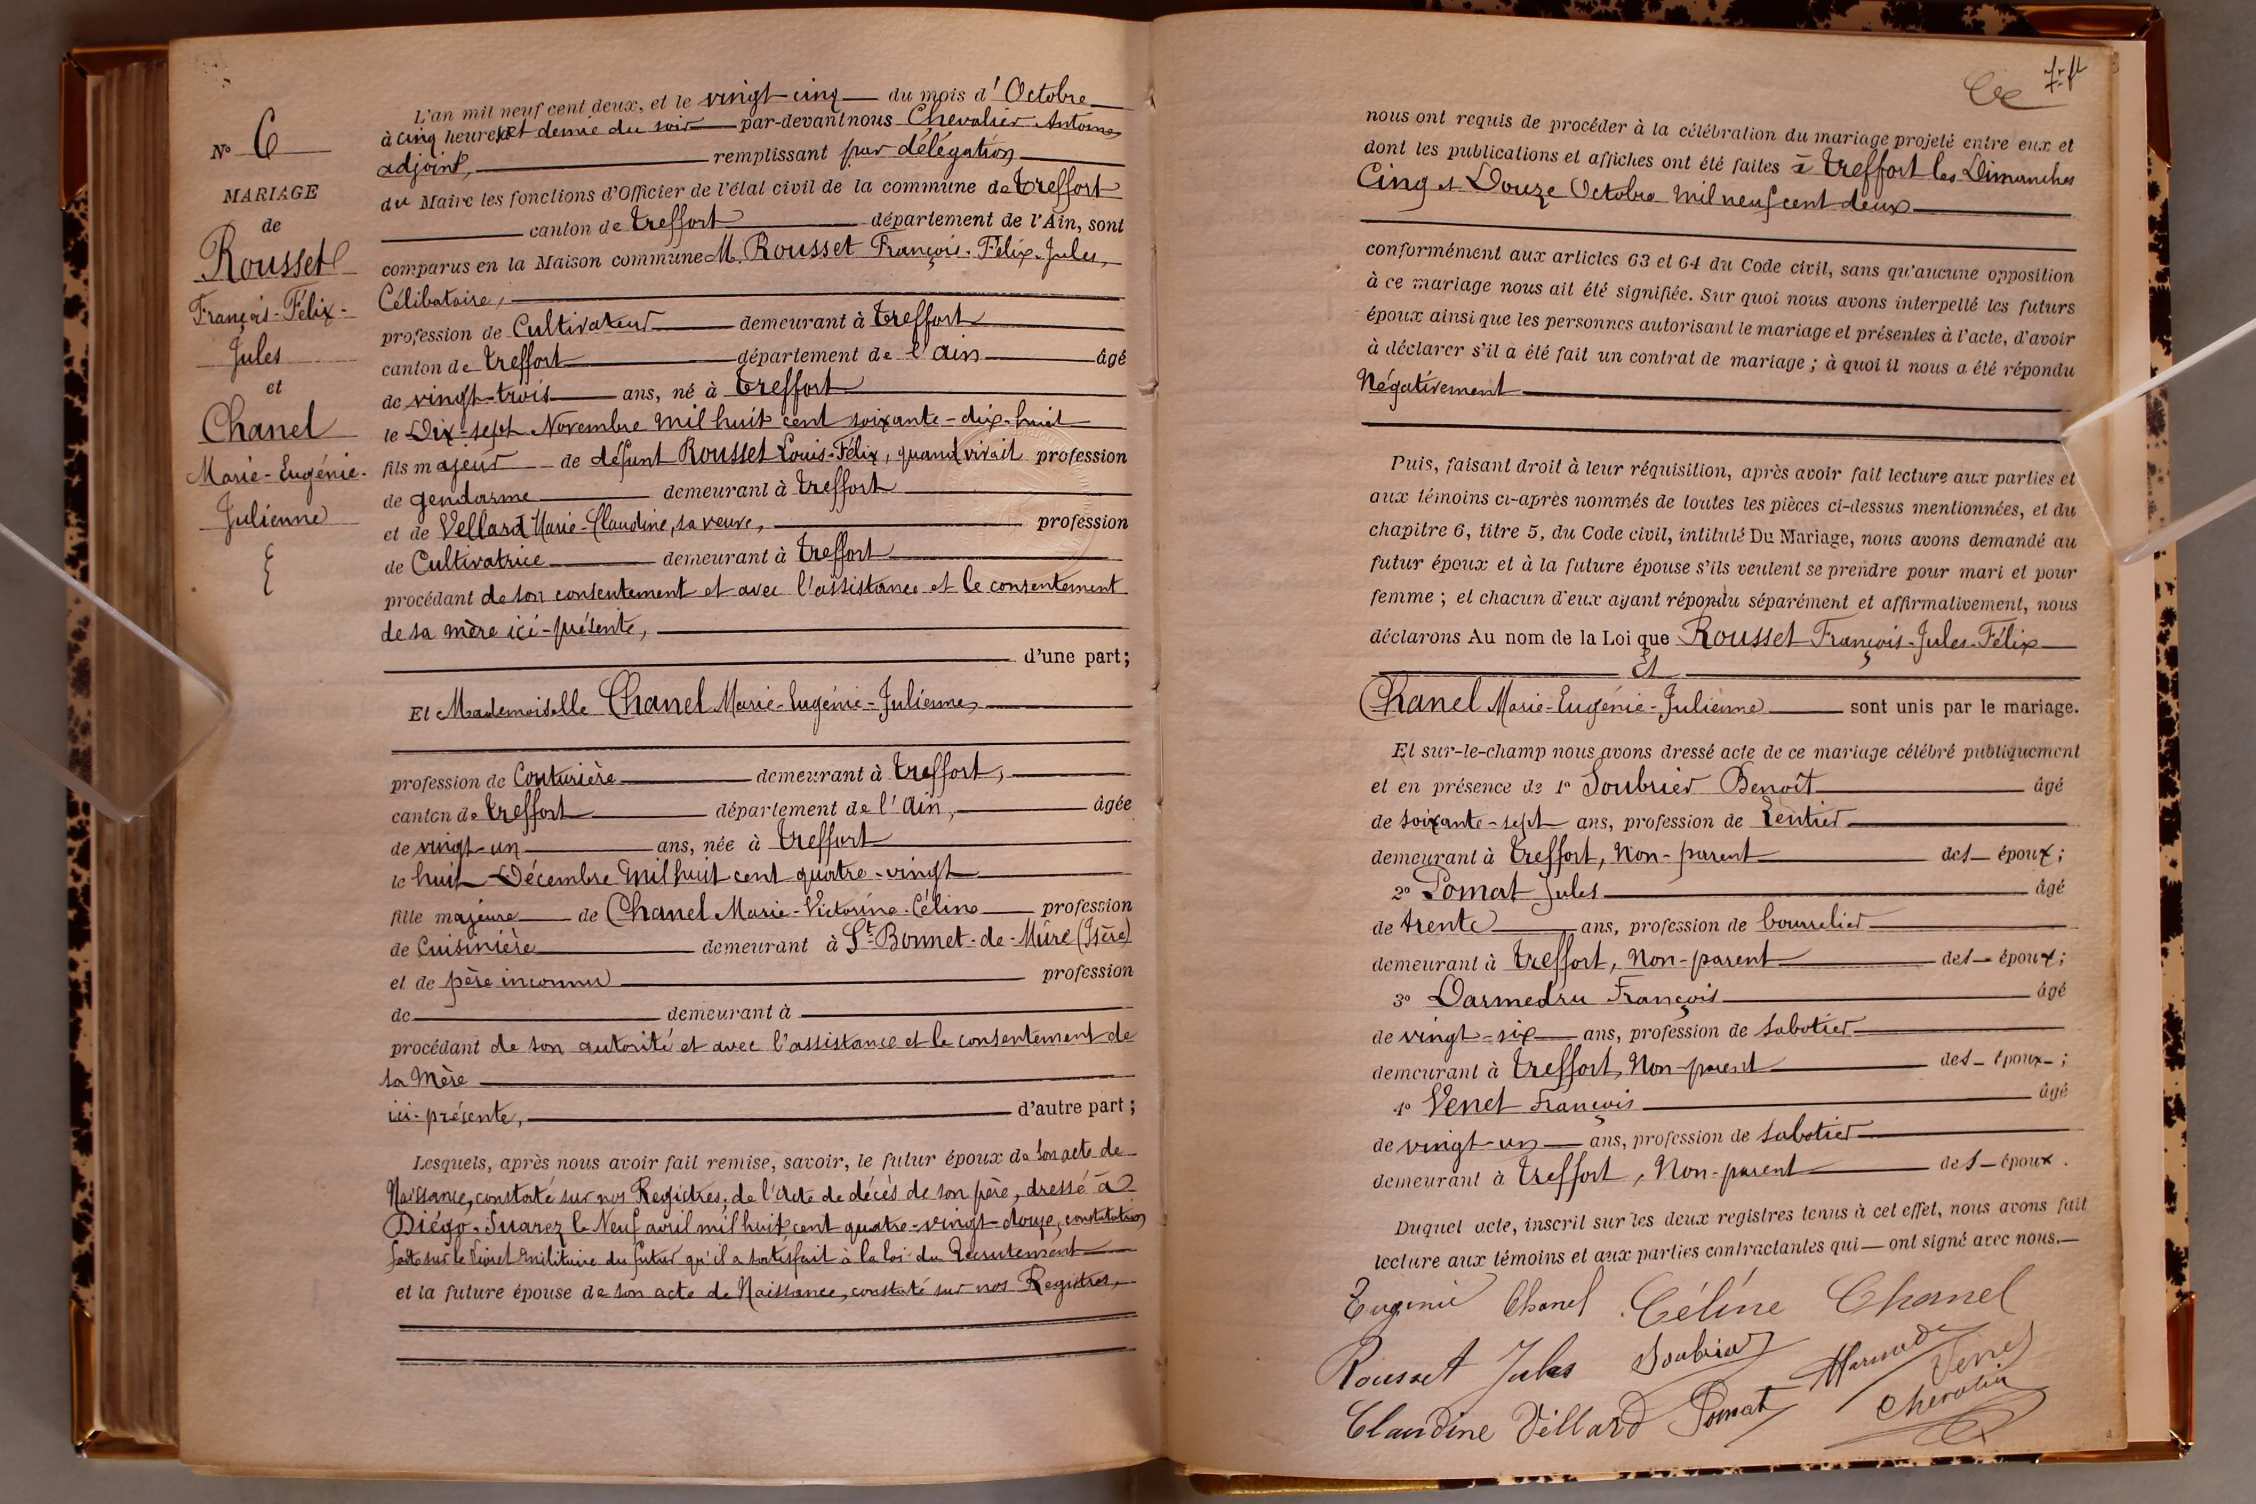 N° 6
MARIAGE
de
Rousset
François-Félix-
Jules
et
Chanel
Marie-Eugénie-
Julienne
L'an mil neuf cent deux, et le vingt-cinq du mois d'Octobre
à cinq heures et demie du soir par-devant nous Chevalier Antoine
adjoint, remplissant par délégation
du Maire les fonctions d'Officier de l'état civil de la commune de Treffort
canton de Treffort département de l'Ain, sont
comparus en la Maison commune M. Rousset François-Félix-Jules,
Célibataire,
profession de Cultivateur demeurant à Treffort
canton de Treffort département de l'Ain âgé
de vingt-trois ans, né à Treffort
le Dix-sept Novembre mil huit cent soixante-dix-huit
fils majeur de défunt Rousset Louis-Félix, quand vivait profession
de gendarme demeurant à Treffort
et de Vellard Marie-Claudine, sa veuve, profession
de Cultivatrice demeurant à Treffort
procédant de son consentement et avec l'assistance et le consentement
de sa mère ici-présente,
d'une part;
Et Mademoiselle Chanel Marie-Eugénie-Julienne,
profession de Couturière demeurant à Treffort,
canton de Treffort département de l'Ain, âgée
de vingt-un ans, née à Treffort
le huit Décembre mil huit cent quatre-vingt
fille majeure de Chanel Marie-Victorine-Céline profession
de Cuisinière demeurant à St-Bonnet-de-Mûre (Isère)
et de père inconnu profession
de demeurant à
procédant de son autorité et avec l'assistance et le consentement de
sa Mère
ici-présente, d'autre part;
Lesquels, après nous avoir fait remise, savoir, le futur époux de son acte de
Naissance, constaté sur nos Registres, de l'acte de décès de son père, dressé à
Diégo-Suarez le Neuf avril mil huit cent quatre-vingt-douze, constatation
faite sur le livret militaire du futur qu'il a satisfait à la loi du Recrutement
et la future épouse de son acte de Naissance, constaté sur nos Registres,
nous ont requis de procéder à la célébration du mariage projeté entre eux et
dont les publications et affiches ont été faites à Treffort les Dimanches
Cinq et Douze Octobre mil neuf cent deux
conformément aux articles 63 et 64 du Code civil, sans qu'aucune opposition
à ce mariage nous ait été signifiée. Sur quoi nous avons interpellé les futurs
époux ainsi que les personnes autorisant le mariage et présentes à l'acte, d'avoir
à déclarer s'il a été fait un contrat de mariage; à quoi il nous a été répondu
Négativement
Puis, faisant droit à leur réquisition, après avoir fait lecture aux parties et
aux témoins ci-après nommés de toutes les pièces ci-dessus mentionnées, et du
chapitre 6, titre 5, du Code civil, intitulé Du Mariage, nous avons demandé au
futur époux et à la future épouse s'ils veulent se prendre pour mari et pour
femme; et chacun d'eux ayant répondu séparément et affirmativement, nous
déclarons Au nom de la Loi que Rousset François-Jules-Félix
Et
Chanel Marie-Eugénie-Julienne sont unis par le mariage.
Et sur-le-champ nous avons dressé acte de ce mariage célébré publiquement
et en présence de 1° Soubrier Benoît âgé
de soixante-sept ans, profession de Rentier
demeurant à Treffort, Non-parent des époux;
2° Pomat Jules âgé
de trente ans, profession de bourrelier
demeurant à Treffort, Non-parent des époux;
3° Darmedru François âgé
de vingt-six ans, profession de sabotier
demeurant à Treffort, Non-parent des époux;
4° Venet François âgé
de vingt-un ans, profession de sabotier
demeurant à Treffort, Non-parent des époux.
Duquel acte, inscrit sur les deux registres tenus à cet effet, nous avons fait
lecture aux témoins et aux parties contractantes qui ont signé avec nous.
Eugénie Chanel Céline Chanel
Rousset Jules Soubrier Venet
Claudine Villard Pomat Chevalier